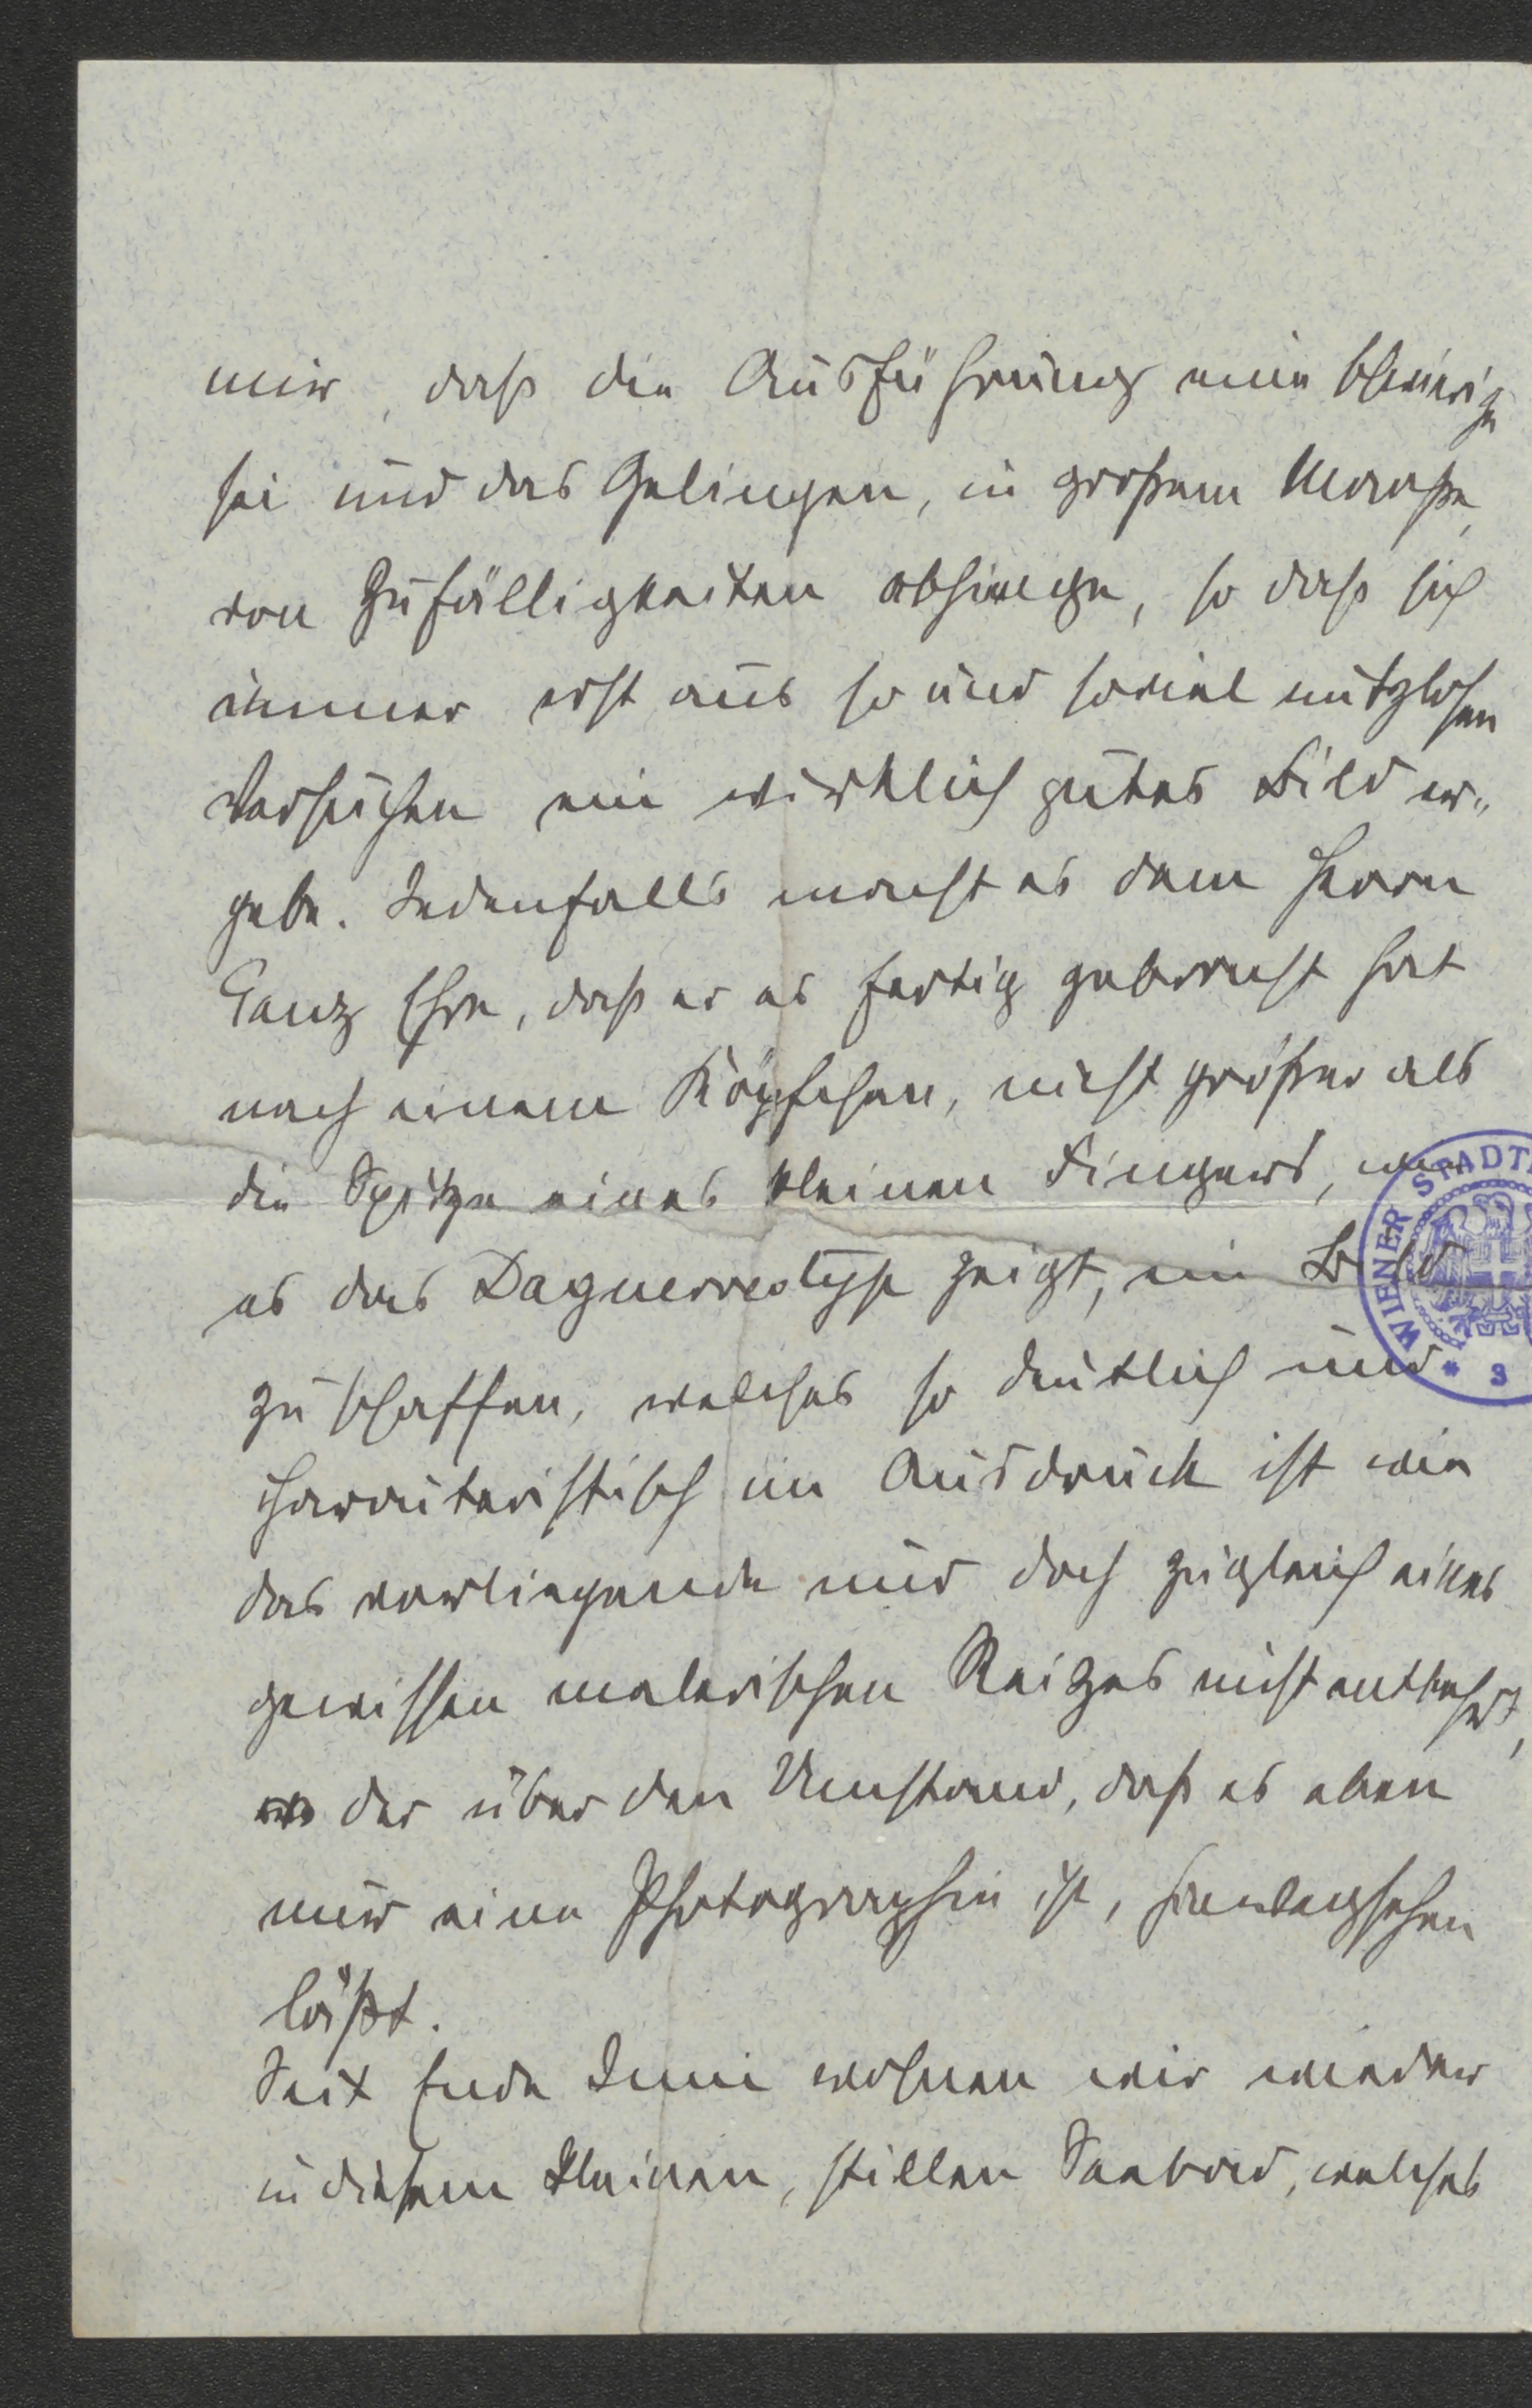 mir, daß die Ausführung eine schwierige
sei und das Gelingen, in großem Maaße,
von Zufälligkeiten abhinge, so daß sich
immer erst aus so und soviel nutzlosen
Versuchen ein wirklich gutes Bild er-
gebe. Jedenfalls macht es dem Herrn
Ganz Ehre, daß er es fertig gebracht hat
nach einem Köpfchen, nicht größer als
die Spitze eines kleinen Fingers, wie
es das Daguerreotyp zeigt, ein Bild
zu schaffen, welches so deutlich und
charakteristisch im Ausdruck ist wie
das vorliegende und doch zugleich eines
gewissen malerischen Reizes nicht entbehrt,
der über den Umstand, daß es eben
nur eine Photographie ist, hinwegsehen
läßt.
Seit Ende Juni wohnen wir wieder
in diesem kleinen, stillen Seebad, welches
WIENER STADT